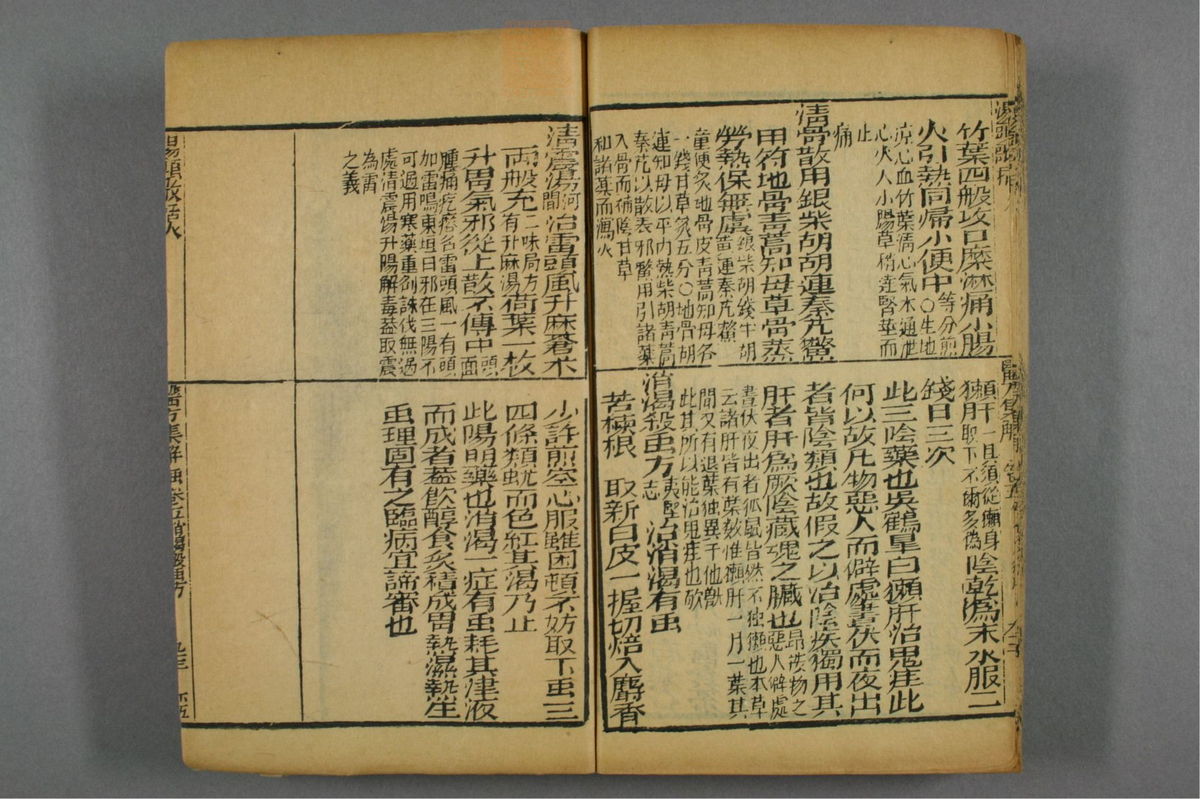 湯頭歌訣
竹葉四般攻口糜淋痛小腸
火引熱同歸小便中等分煎○生地
涼心血竹葉清心氣木通泄
心火入小腸草稍達腎莖而
止
痛
清骨散用銀柴胡胡連秦艽鱉
甲符地骨青蒿知母草骨蒸
勞熱保無虞銀柴胡錢半胡
黃連秦艽鱉
童便炙地骨皮青蒿知母各
一錢甘草炙五分○地骨胡
連知母以平內熱柴胡青蒿
秦艽以散表邪鱉用引諸藥
入骨而補陰甘草
和諸藥而瀉火
清震湯河
間治雷頭風升麻蒼朮
兩般充二味局方
有升麻湯荷葉一枚
升胃氣邪從上散不傳中頭
面
腫痛疙瘩名雷頭風一有頭
如雷鳴東垣曰邪在三陽不
可過用寒藥重劑誅伐無過
處清震湯升陽解毒蓋取震
為雷
之義
醫方集解
獺肝一具須從獺身
獺肝取下不爾多偽陰乾為末水服二
錢日三次
此三陰藥也吳鶴皐曰獺肝治鬼疰此
何以故凡物惡人而僻處晝伏而夜出
者皆陰類也故假之以治陰疾獨用其
肝者肝為厥陰藏魂之臟也昂按物之
惡人僻處
晝伏夜出者狐鼠皆然不独獺也本草
云諸肝皆有葉数惟獺肝一月一葉其
間又有退葉独異于他獸
此其所以能治鬼疰也欤
消渴殺虫方夷堅
志治消渴有虫
苦楝根 取新白皮一握切焙入麝香
少許煎空心服雖困頓不妨取下虫三
四條類蚘而色紅其渴乃止
此陽明藥也消渴一症有虫耗其津液
而成者蓋飲醇食炙積成胃熱濕熱生
虫理固有之臨病宜諦審也
醫方集解